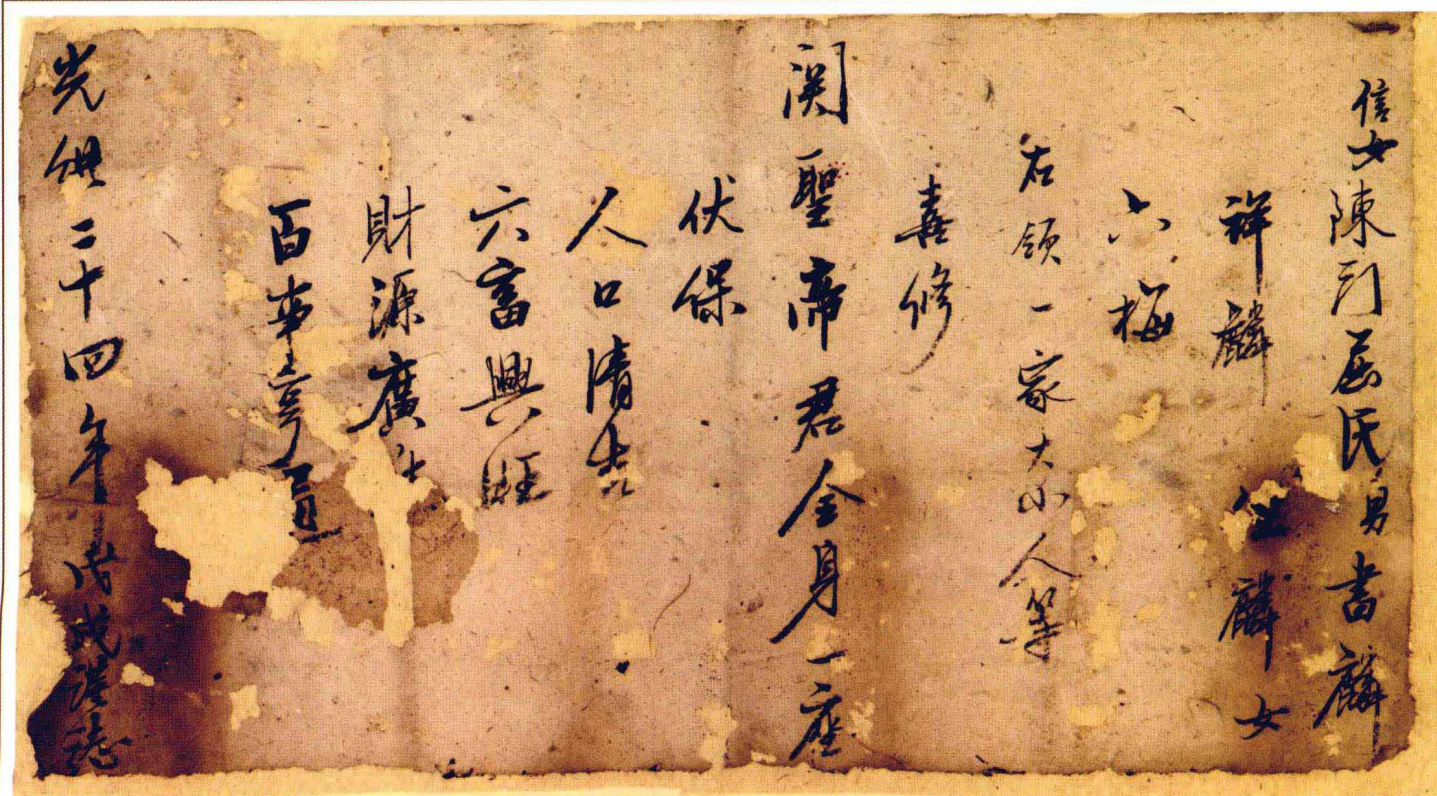 一信女陳門屈氏男書麟
祥麟 麟女
六梅
右領一家大小人等
喜修
関聖帝君金身一座
伏保
人口清吉
六畜興旺
財源廣
百事亨通
光緒二十四年戊戌謹誌